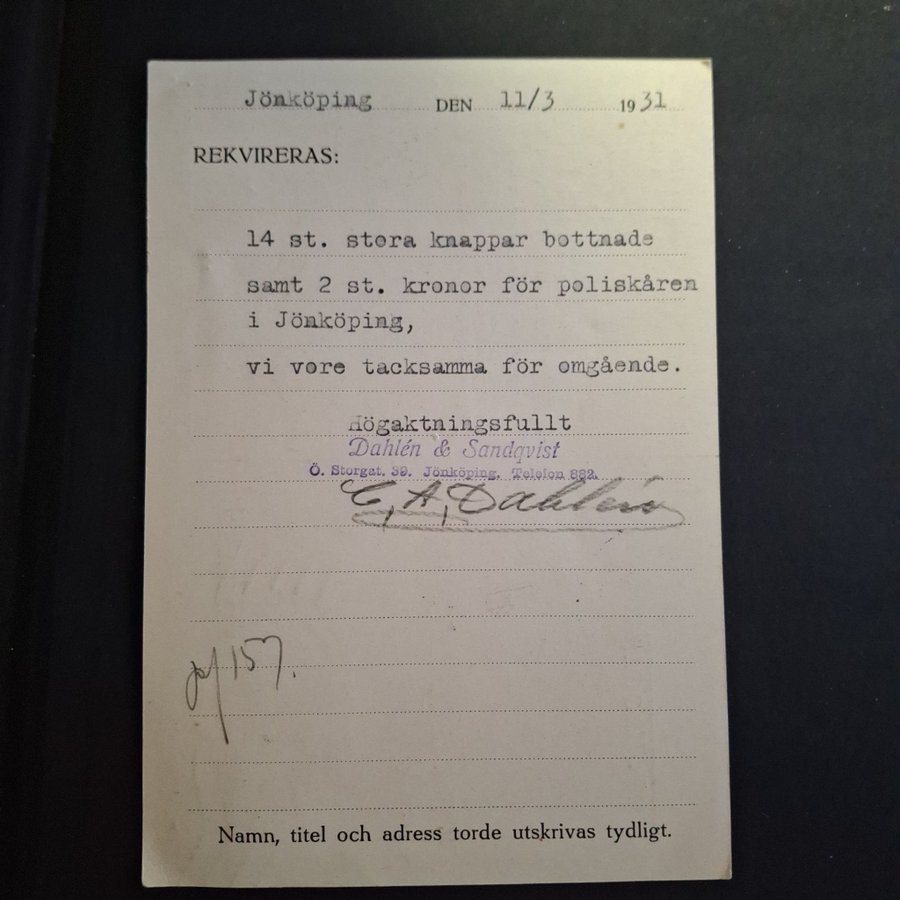 Jönköping DEN 11/3 1931
REKVIRERAS:
14 st. stora knappar bottnade
samt 2 st. kronor för poliskåren
i Jönköping,
vi vore tacksamma för omgående.
Högaktningsfullt
Dahlén & Sandqvist
Ö. Storgat. 39. Jönköping. Telefon 882.
C, A, Dahlén
157.
Namn, titel och adress torde utskrivas tydligt.